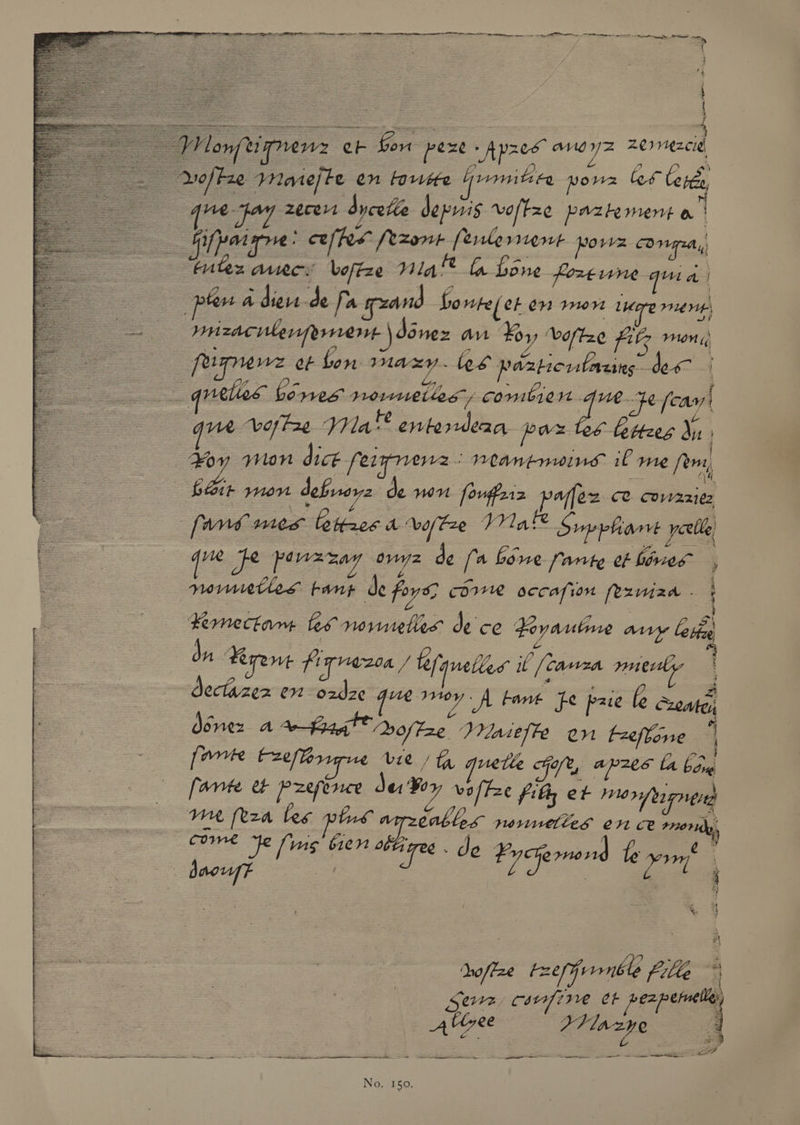 Monseigneur et bon pere. Apres auoyr remercie
vostre Maieste en toutte humilite pour les lettres
que jay receu dycelle depuis vostre partement a
Hispaigne: cestes seront seulement pour congra
tuler auecq vostre Mate la bone fortune qui a
pleu a dieu de sa grand bonte (et en mon iugement
miraculeusement) dōnez au Roy vostre filz mons
seigneur et bon mary. les particularitez des
quelles bones nouuelles, combien que Je scay
que vostre Mate entendera par les lettres du
Roy mon dict seigneur: neantmoins il me sem
bloit mon debuoyr de non souffrir passer ce courrier
sans mes lettres a vostre Mate Suppliant ycelle
que Je pourray ouyr de sa bōne sante et bōnes
nouuelles tant de foys cōme occasion seruira.
Remectant les nouuelles de ce Royaulme aux lettres
du Regent figueroa / lesquelles il scaura mieulx
declarer en ordre que moy. A tant Je prie le createur
dōner a vostre Maieste en tresbōne
sante treslongue vie / la quelle chose, apres la bōne
sante et presence du Roy vostre filz et monseigneur
me sera les plus agreables nouuelles en ce monde
cōme Je suis bien obligee. de Rychemond le
daoust
vostre treshumble fille
Seur cousine et perpetuelle
Allyee Marye
No. 150.